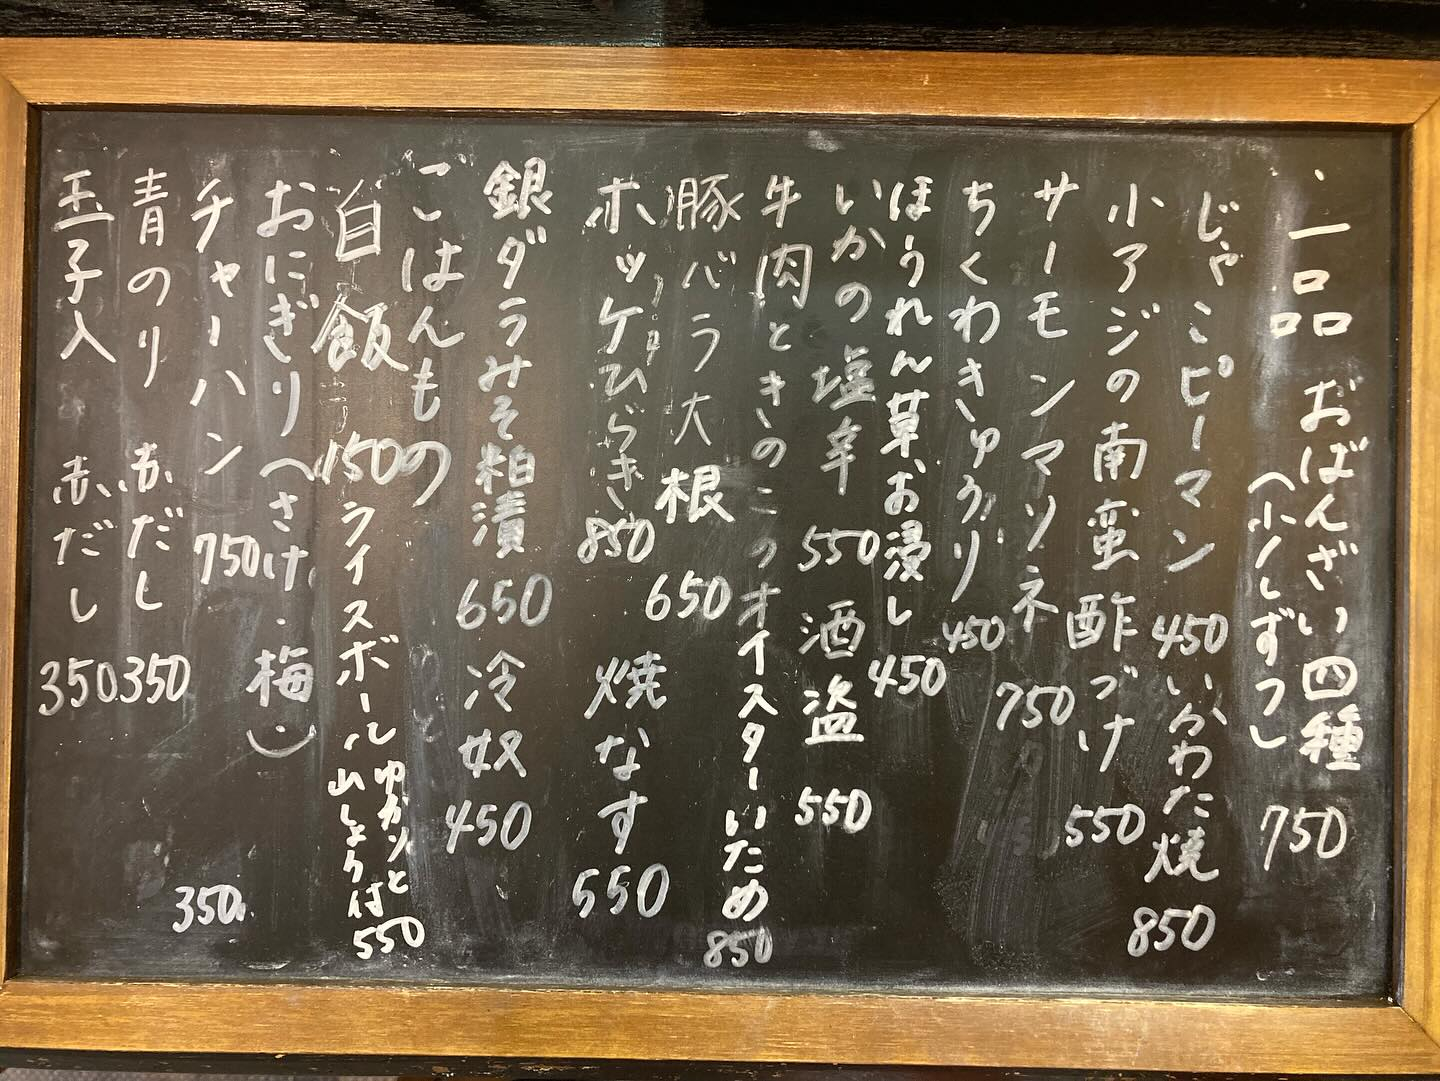 一品 おばんざい四種 750
(少しずつ)
じゃこピーマン 450 いかわた焼 850
小アジの南蛮酢づけ 550
サーモンマリネ 750
ちくわきゅうり 450
ほうれん草お浸し 450
いかの塩辛 550 酒盗 550
牛肉ときのこのオイスターいため 850
豚バラ大根 650
ホッケひらき 850 焼なす 550
銀ダラみそ粕漬 650 冷奴 450
ごはんもの
白飯 150 ライスボール ゆかりと山しょう付 550
おにぎり(さけ・梅) 350
チャーハン 750
青のり 赤だし 350
玉子入 赤だし 350